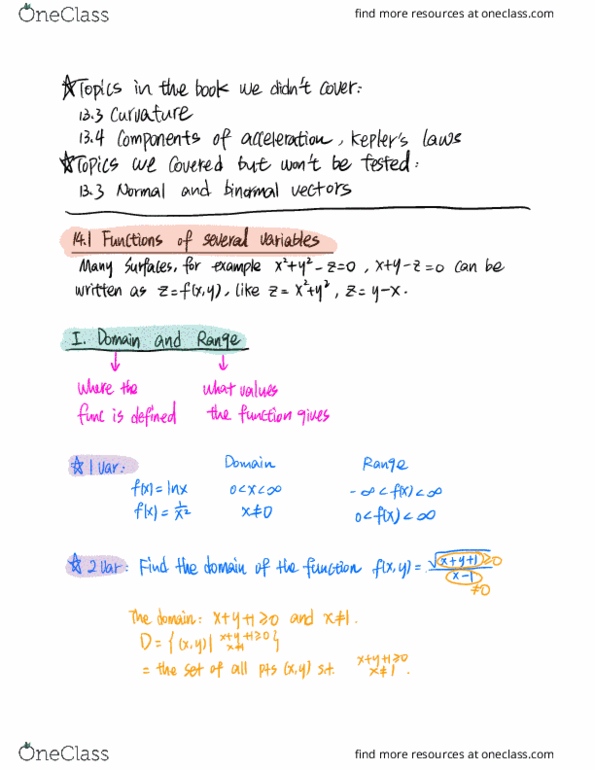 OneClass
find more resources at oneclass.com
☆Topics in the book we didn't cover:
13.3 Curvature
13.4 Components of acceleration, Kepler's laws
☆Topics we covered but won't be tested:
13.3 Normal and binormal vectors
14.1 Functions of several variables
Many surfaces, for example x²+y²-z=0, x+y-z=0 can be
written as z=f(x,y), like z=x²+y², z=y-x.
I. Domain and Range
↓ ↓
where the what values
func is defined the function gives
☆ 1 Var: Domain Range
f(x)=lnx 0<x<∞ -∞<f(x)<∞
f(x)=1/x² x≠0 0<f(x)<∞
☆ 2 Var: Find the domain of the function f(x,y)=√(x+y+1)/(x-1) ≥0
≠0
The domain: x+y+1≥0 and x≠1.
D={(x,y)| x+y+1≥0
x≠1}
= the set of all pts (x,y) s.t. x+y+1≥0
x≠1.
OneClass
find more resources at oneclass.com